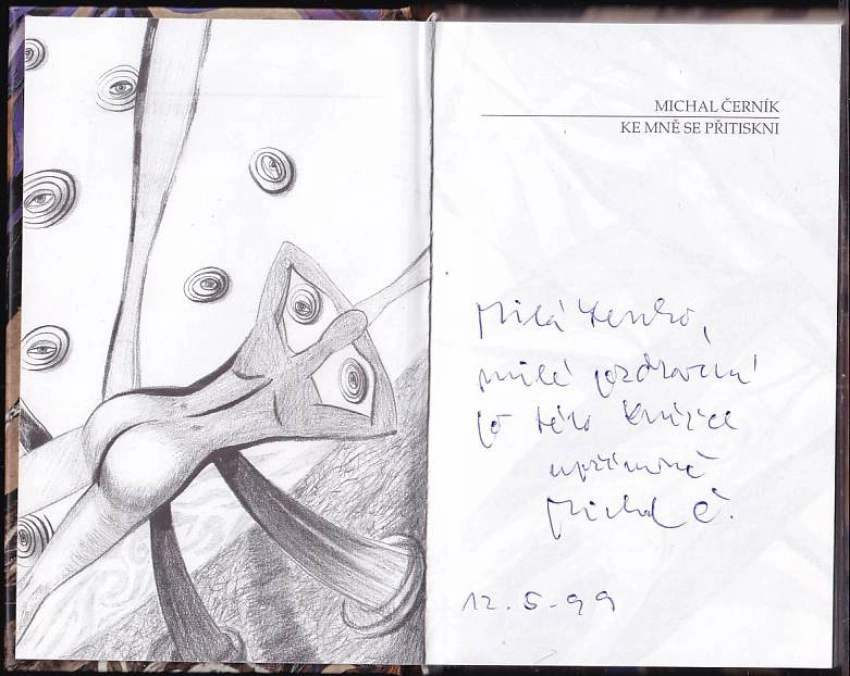 MICHAL ČERNÍK
KE MNĚ SE PŘITISKNI
Milá
milé pozdravení
po této knížce
upřímně
Michal Č.
12. 5. 99